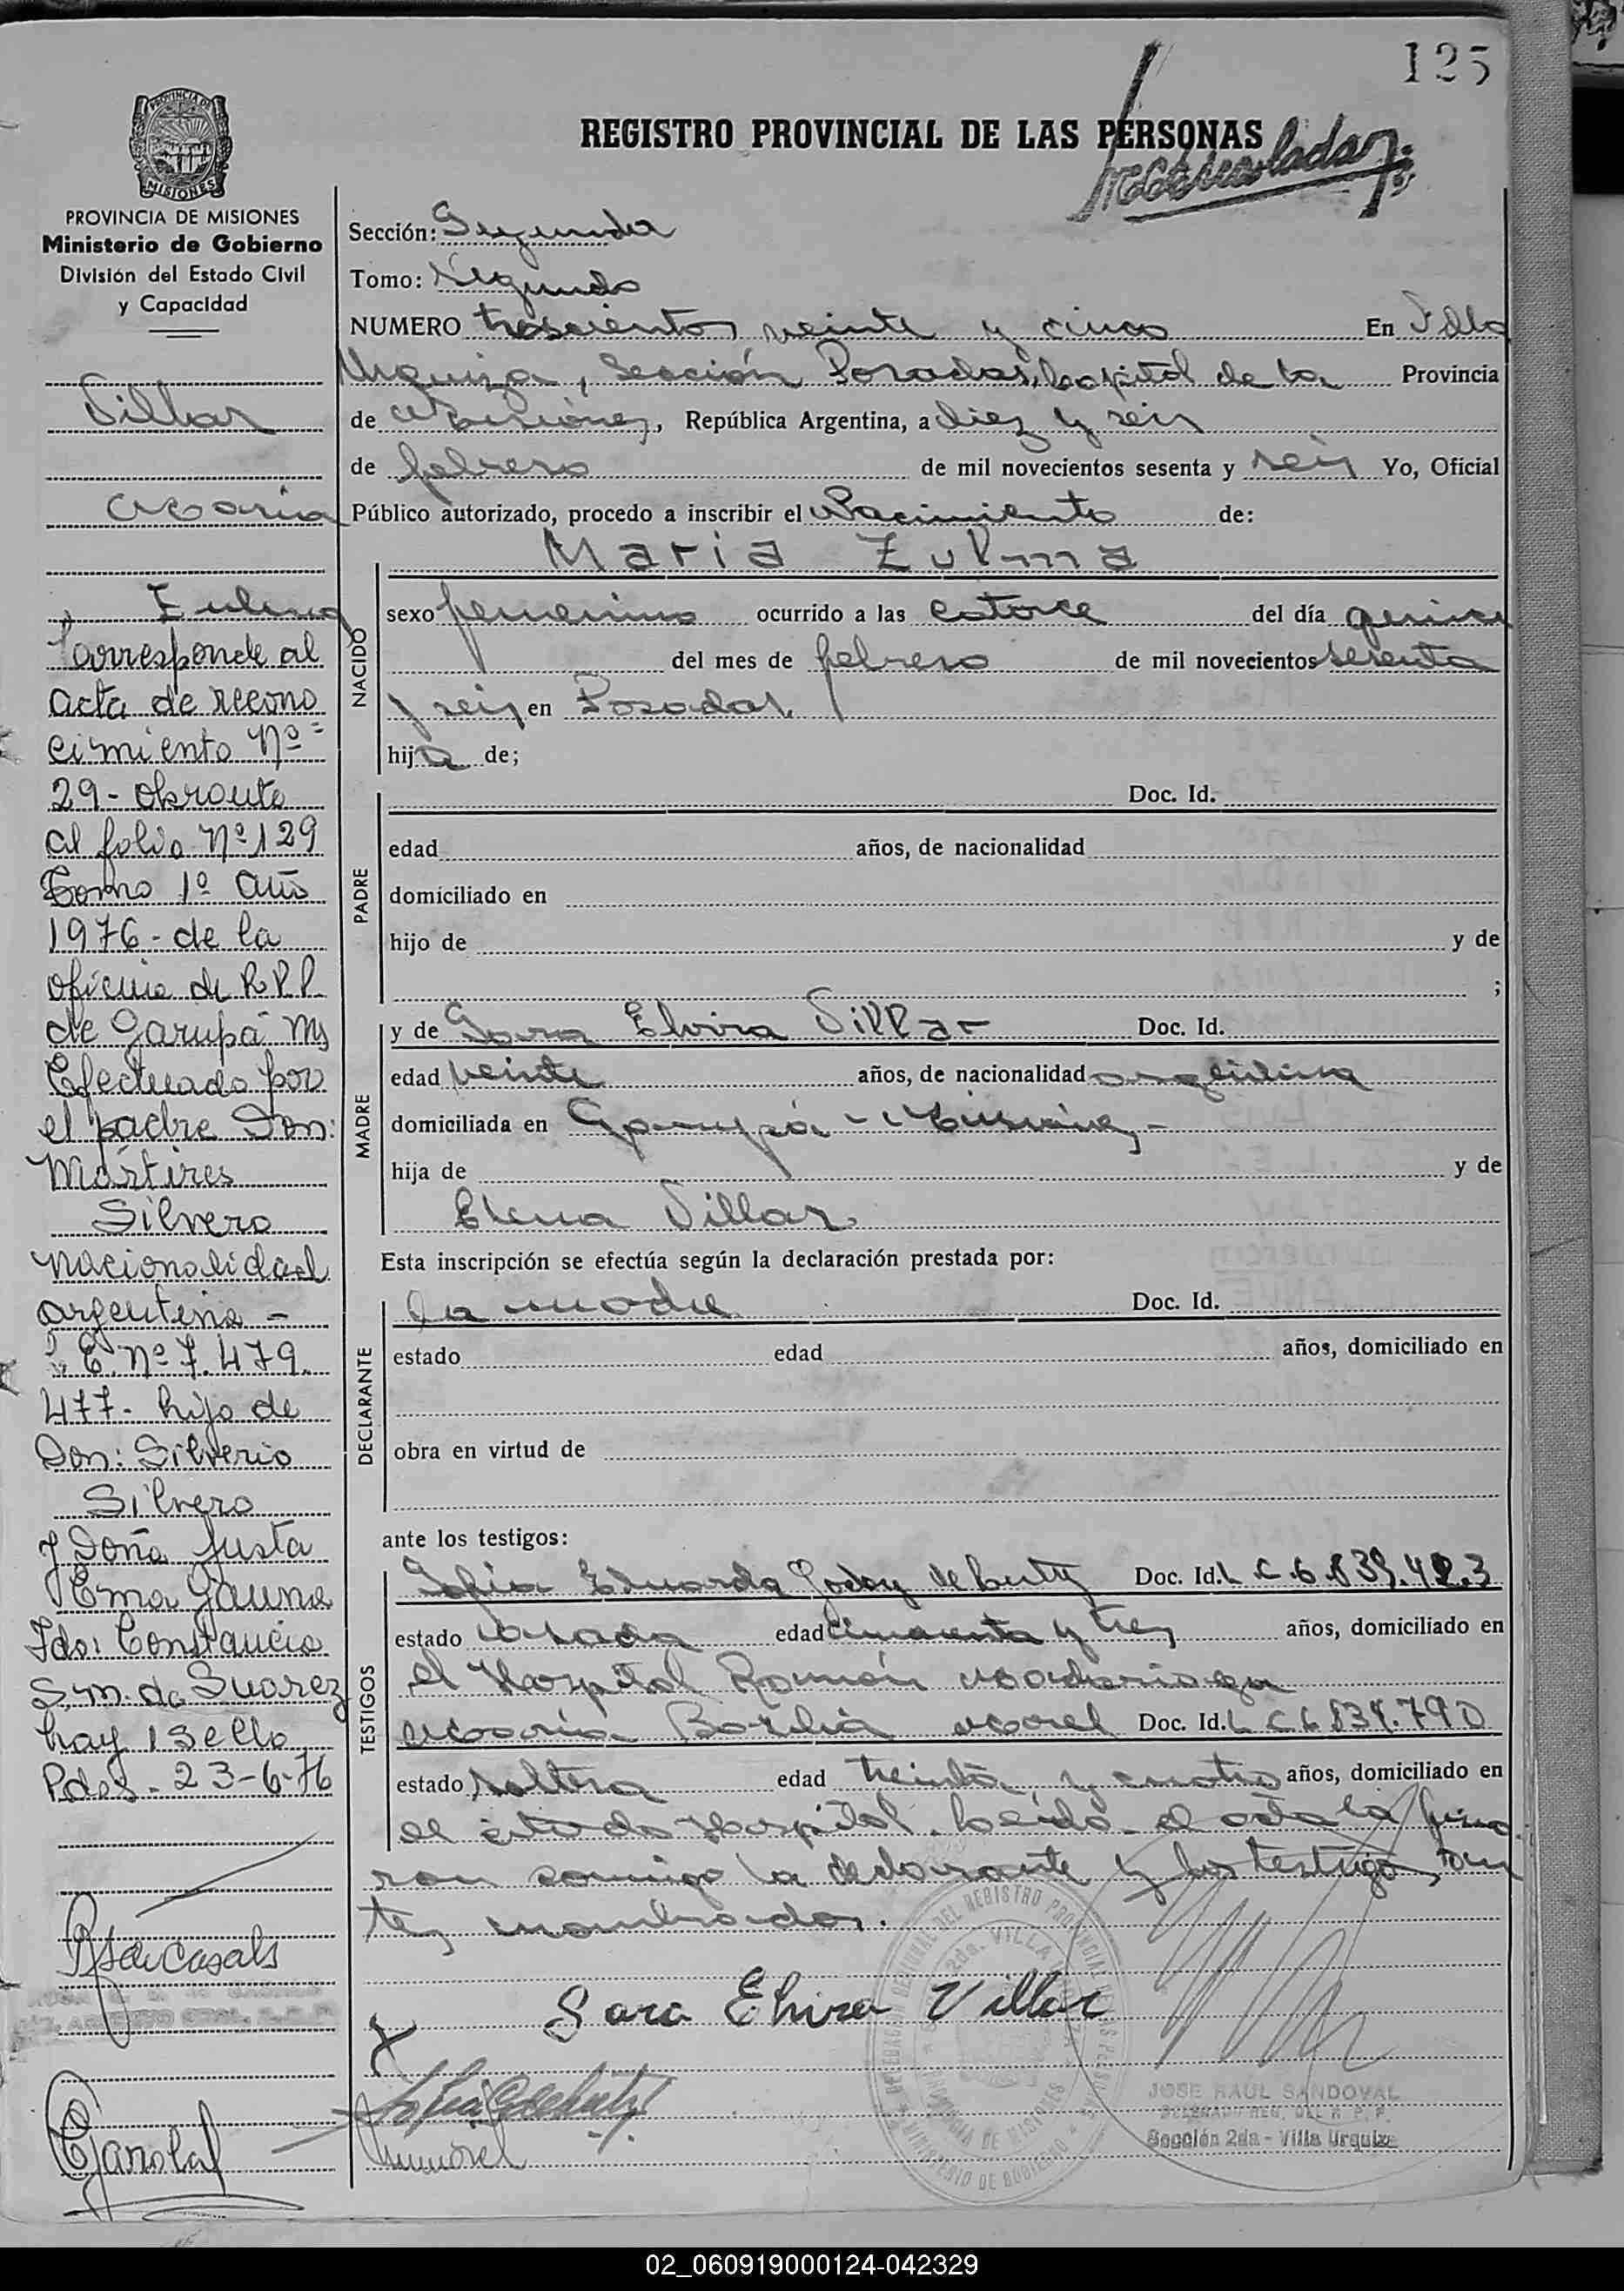 125
REGISTRO PROVINCIAL DE LAS PERSONAS
PROVINCIA DE
MISIONES
PROVINCIA DE MISIONES
Ministerio de Gobierno
División del Estado Civil
y Capacidad
Villar
Maria
Zulma
Corresponde al
acta de recono
cimiento Nº
29 - obrante
al folio Nº 129
Tomo 1º año
1976 - de la
oficina de R.P.P.
de Garupá Ms
Efectuado por
el padre Don:
Mártires
Silvero
nacionalidad
argentina -
E. Nº 7.479.
477 - hijo de
Don: Silverio
Silvero
y Doña Justa
Ema Gauna
Fdo: Constancia
S.m. de Suarez
hay 1 sello
Pdas - 23-6-76
Sección: Segunda
Tomo: Segundo
NUMERO trescientos veinte y cinco En Villa
Urquiza, Sección Posadas, capital de la Provincia
de Misiones, República Argentina, a diez y seis
de febrero de mil novecientos sesenta y seis Yo, Oficial
Público autorizado, procedo a inscribir el Nacimiento de:
Maria Zulma
NACIDO
sexo femenino ocurrido a las catorce del día quince
del mes de febrero de mil novecientos sesenta
y seis en Posadas
hija de;
PADRE
Doc. Id.
edad años, de nacionalidad
domiciliado en
hijo de y de
;
MADRE
y de Sara Elvira Villar Doc. Id.
edad veinte años, de nacionalidad argentina
domiciliada en Garupá - Misiones -
hija de y de
Elena Villar
Esta inscripción se efectúa según la declaración prestada por:
DECLARANTE
la madre Doc. Id.
estado edad años, domiciliado en
obra en virtud de
ante los testigos:
TESTIGOS
Sofia Eduarda Godoy de Doc. Id. L C 6.839.423
estado casada edad cincuenta y tres años, domiciliado en
el Hospital Ramón Madariaga
Maria Basilia Morel Doc. Id. L C 6.839.790
estado soltera edad treinta y cuatro años, domiciliado en
el citado Hospital. Leída el acta la firma
ron conmigo la declarante y los testigos, an
tes nombrados.
Sara Elvira Villar
JOSE RAUL SANDOVAL
DELEGADO REG. DEL R. P. P.
Sección 2da - Villa Urquiza
02_060919000124-042329